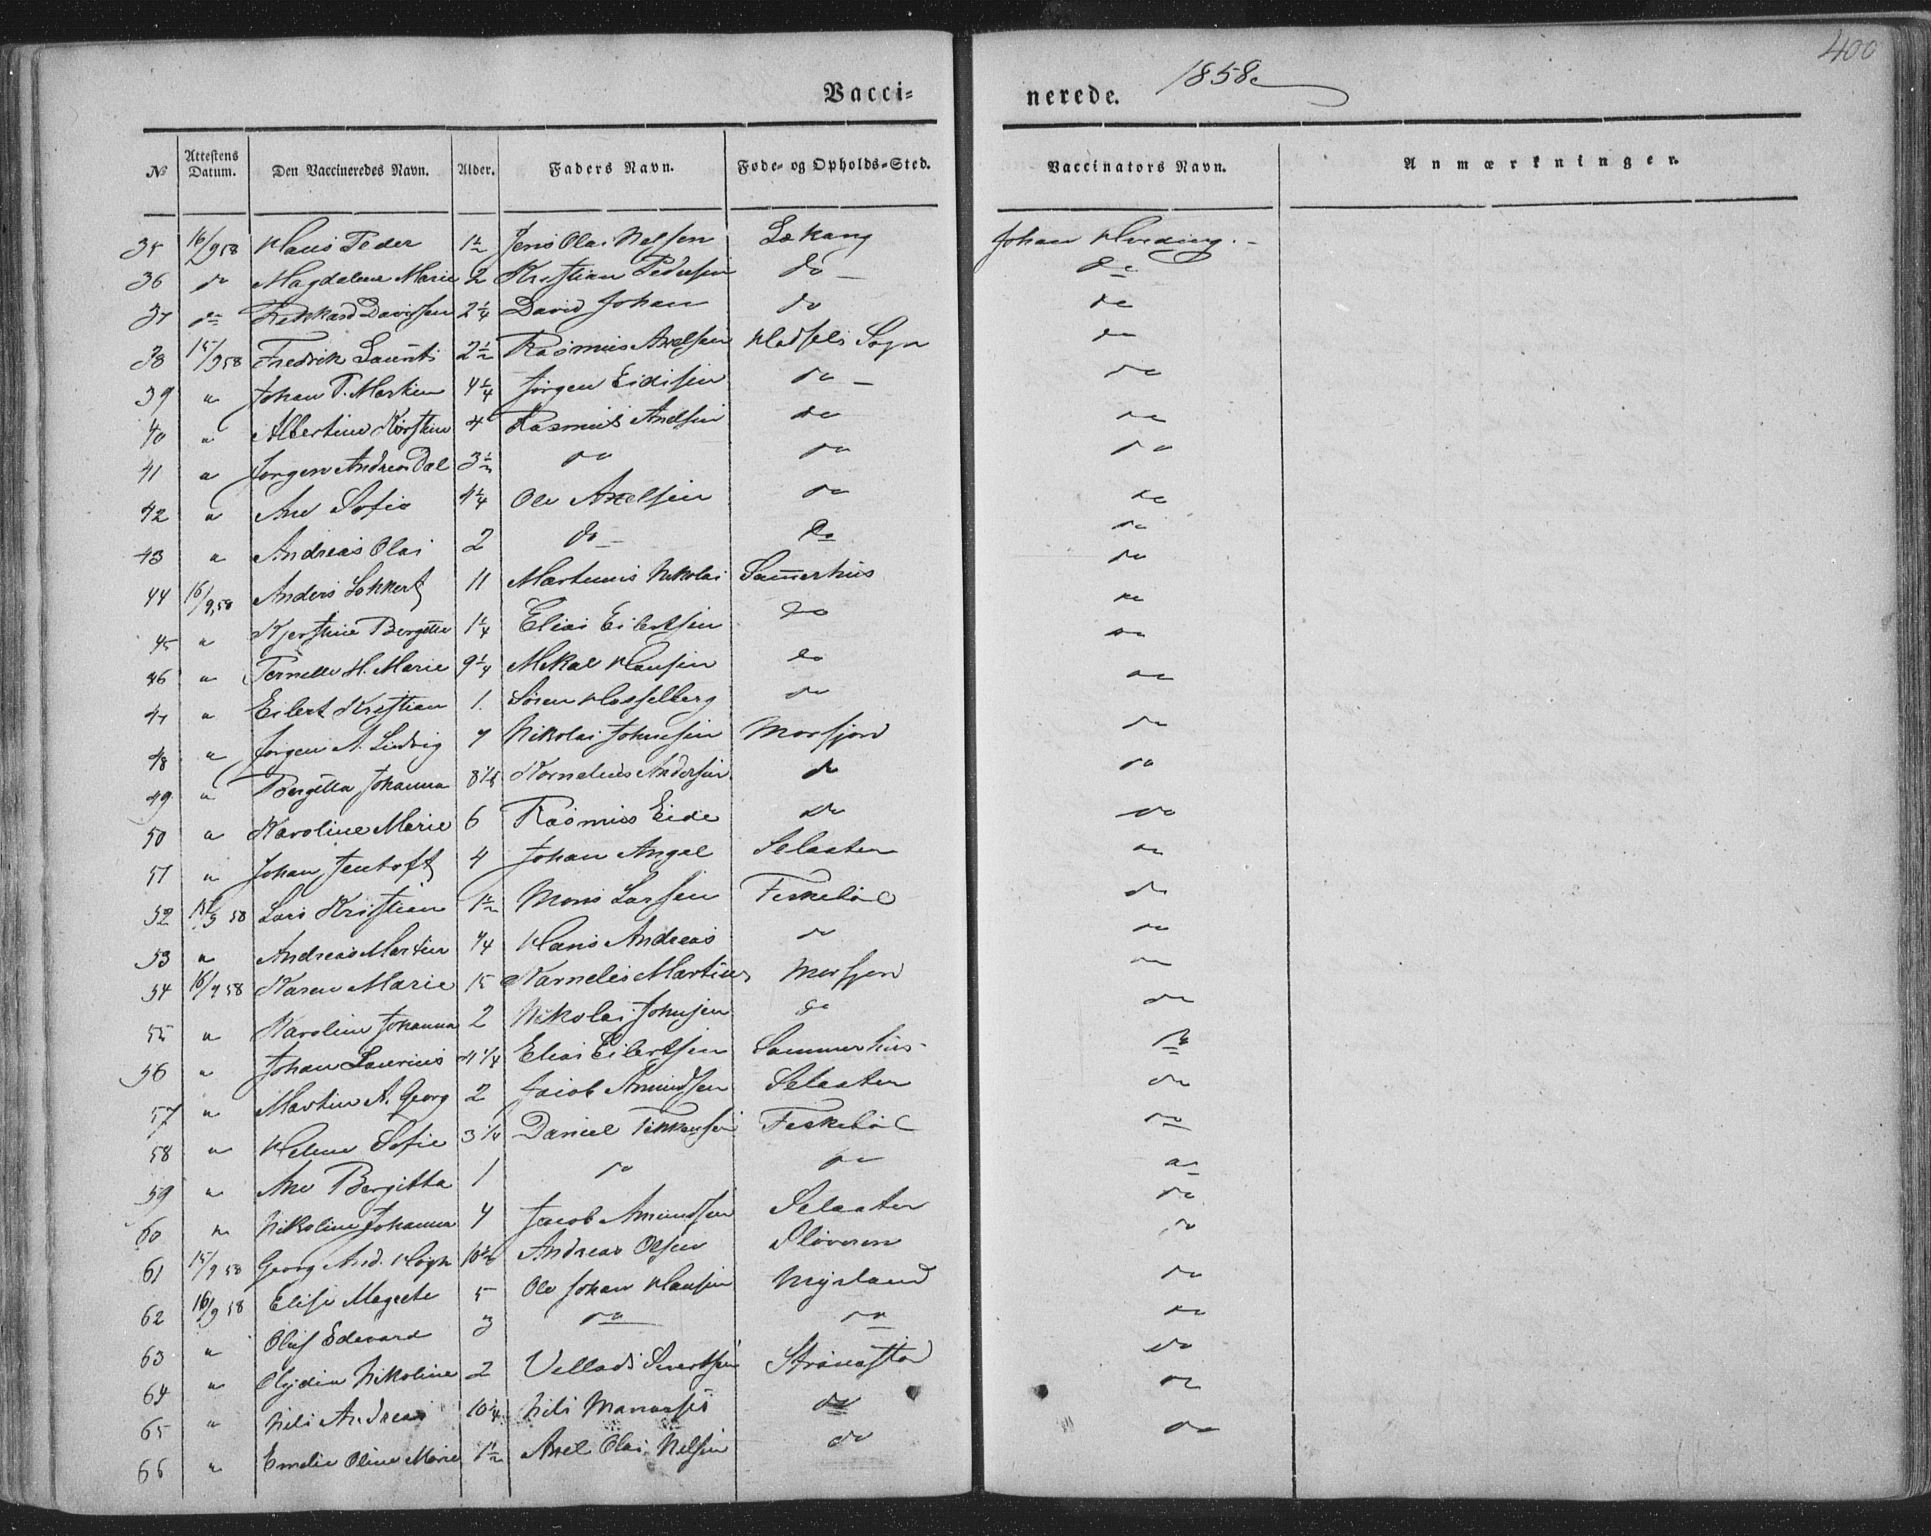 400
Vacci=
nerede. 1858
№ Attestens Datum. Den Vaccineredes Navn. Alder. Faders Navn. Føde- og Opholds-Sted. Vaccinators Navn. Anmærkninger.
35 16/9 58 Hans Peder 1½ Jens Olai Nelsen Løkang Johan Hveding.
36 do Magdelene Marie 2 Kristian Pedersen do do
37 do Davidsen 2¼ David Johan do do
38 15/9 58 Fredrik Laurits 2½ Rasmus Axelsen Hadsels Sogn do
39 " Johan P. Martin 4¼ Jørgen Eidisen do do
40 " Albertine Kirstine 4 Rasmus Axelsen do do
41 " Jørgen Andreas Dal 3½ do do do
42 " Ane Sofie 4¼ Ole Axelsen do do
43 " Andreas Olai 2 do do do
44 16/9 58 Anders Lokkert 11 Martinus Nikolai Sammerhus do
45 " Kjerstine Bergitte 1¼ Elias Eilertsen do do
46 " Pernelle M. Marie 9¼ Mikal Hansen do do
47 " Eilert Kristian 1. Sören Hasselberg do do
48 " Jørgen A. Ludvig 7 Nikolai Johnsen Morfjord do
49 " Bergitta Johanna 8 Kornelius Andersen do do
50 " Karoline Marie 6 Rasmus Eide do do
51 " Johan Jentoft 4 Johan Angel Selaater do
52 15/9 58 Lars Kristian 1½ Mons Larsen Fiskebøl do
53 " Andreas Martin ¾ Hans Andreas do do
54 16/9 58 Karen Marie 15 Karnelis Martinus Morfjord do
55 " Karoline Johanna 2 Nikolai Johnsen do do
56 " Johan Laurius 4¼ Elias Eilertsen Sammerhus do
57 " Martin A. Georg 2 Jacob Amundsen Selaater do
58 " Helene Sofie 3¼ Daniel Fiskebøl do
59 " Ane Bergitta 1 do do do
60 " Nikoline Johanna 4 Jacob Amundsen Selaater do
61 15/9 58 Georg And. Høgh 10½ Andreas Olsen Sløveren do
62 16/9 58 Elise Magrete 5 Ole Johan Hansen Myrland do
63 " Oluf Edevard 3 do do do
64 " Olydia Nikoline 2 Vellads Sivertsen Strønstad do
65 " Nils Andreas 10¼ Nils Manasses do do
66 " Emelie Oline Marie 1½ Axel Olai Nelsen do do